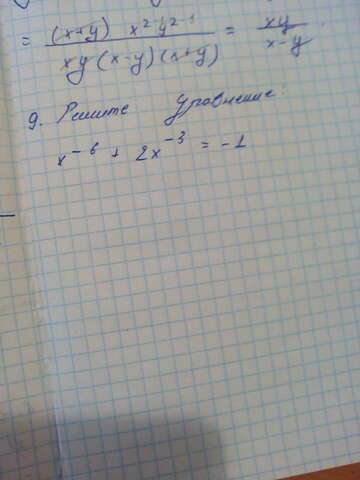 = (x+y) x² y² / xy (x-y) (x+y) = xy / x-y
9. Решите уравнение:
x⁻⁶ + 2x⁻³ = -1